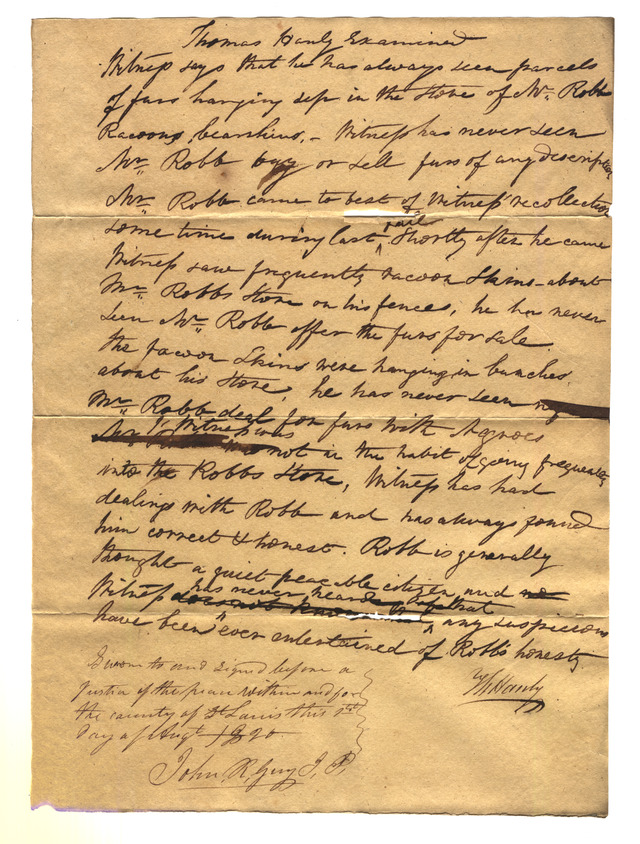 Thomas Hanly Examined
Witness says that he has always seen parcels
of furs hanging up in the Store of Mr. Robb
Racoons, bearskins, - Witness has never seen
Mr. Robb buy or sell furs of any description
Mr. Robb came to best of Witness' recollection
some time during last fall Shortly after he came
Witness saw frequently racoon Skins about
Mr. Robbs Store on his fences, he has never
seen Mr. Robb offer the furs for sale.
the racoon Skins were hanging in bunches
about his Store, he has never seen
Mr. Robb deal for furs with Negroes
Witness was not in the habit of going frequently
into the Robbs Store, Witness has had
dealings with Robb and has always found
him correct & honest. Robb is generally
thought a quiet peacible citizen and
Witness has never heard that any suspicions
have been ever entertained of Robb's honesty
Th Hanly
Sworn to and signed before a
Justice of the peace within and for
the county of St Louis this 1st
day of Augt 1820
John R, Guy J. P.